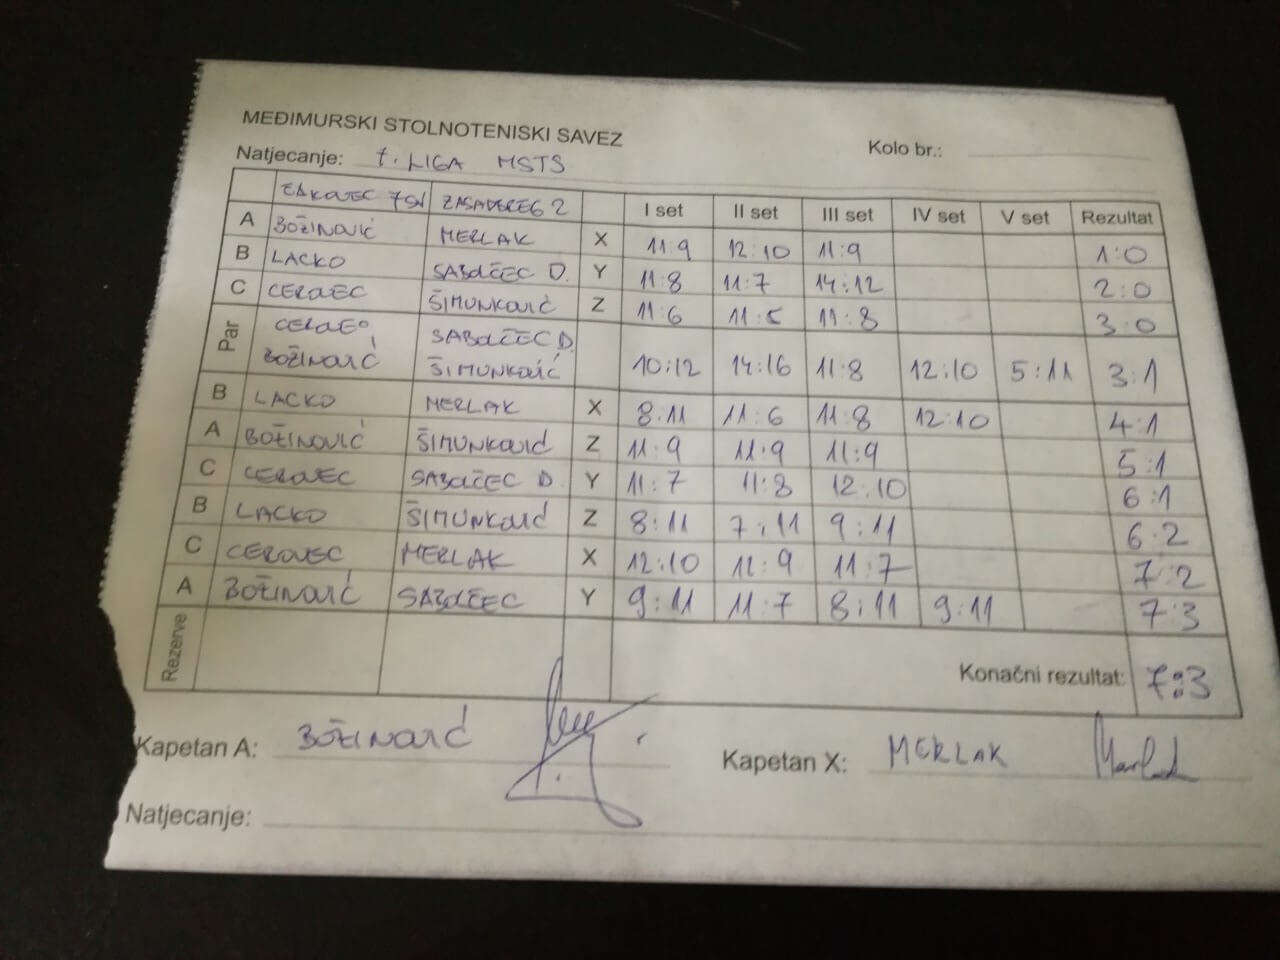 MEĐIMURSKI STOLNOTENISKI SAVEZ
Kolo br.:
Natjecanje: 1. LIGA MSTS
ZASADBREG 2 I set II set III set IV set V set Rezultat
A BOŽINOVIĆ MERLAK X 11:9 12:10 11:9 1:0
B LACKO SABOLČEC D. Y 11:8 11:7 14:12 2:0
C CEROVEC ŠIMUNKOVIĆ Z 11:6 11:5 11:8 3:0
Par CEROVEC SABOLČEC D.
BOŽINOVIĆ ŠIMUNKOVIĆ 10:12 14:16 11:8 12:10 5:11 3:1
B LACKO MERLAK X 8:11 11:6 11:8 12:10 4:1
A BOŽINOVIĆ ŠIMUNKOVIĆ Z 11:9 11:9 11:9 5:1
C CEROVEC SABOLČEC D. Y 11:7 11:8 12:10 6:1
B LACKO ŠIMUNKOVIĆ Z 8:11 7:11 9:11 6:2
C CEROVEC MERLAK X 12:10 11:9 11:7 7:2
A BOŽINOVIĆ SABOLČEC Y 9:11 11:7 8:11 9:11 7:3
Rezerve Konačni rezultat: 7:3
Kapetan A: BOŽINOVIĆ Kapetan X: MERLAK
Natjecanje: